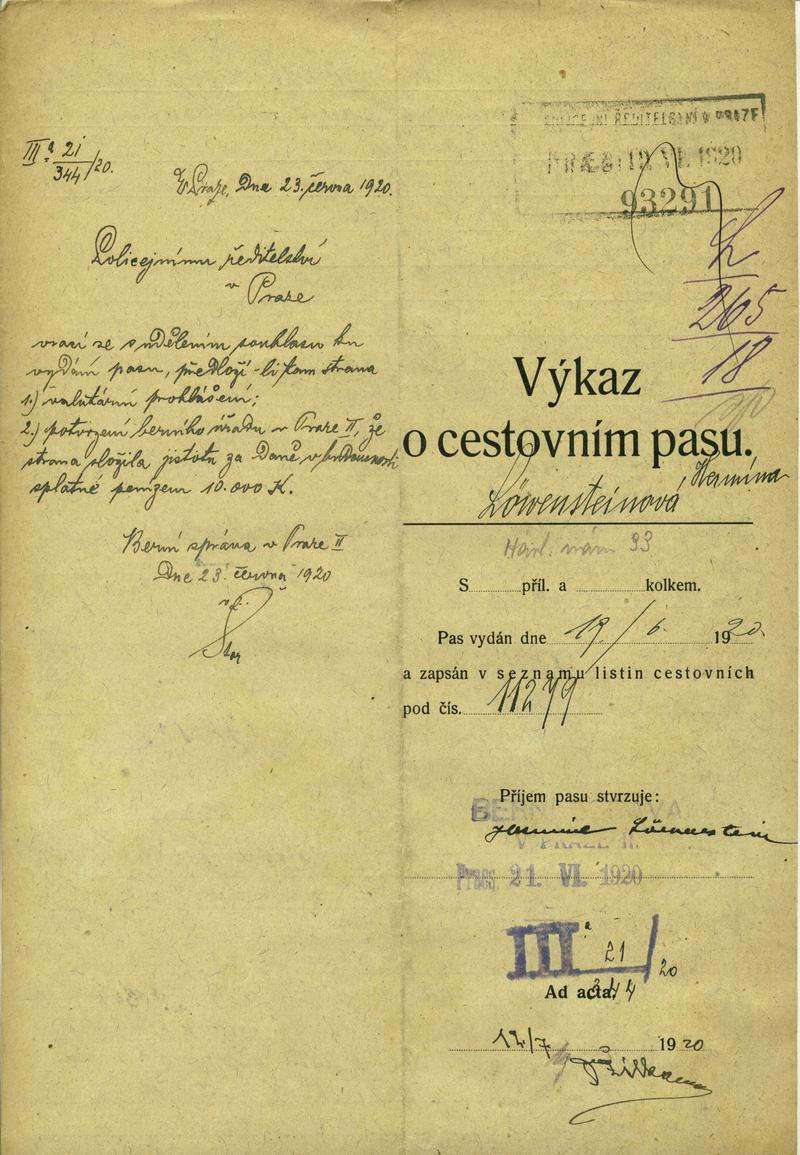 III.a 21/344/20.
V Praze, Dne 23. června 1920.
Policejnímu ředitelství
v Praze
vrací se s udělením souhlasu ku
vydání pasu, předloží-li tam strana
1.) valutární prohlášení;
2.) potvrzení berního úřadu v Praze II, že
strana složila jistotu za Daně v budoucnosti
splatné penízem 10.000 K.
Berní správa v Praze II
Dne 23. června 1920
POLICEJNÍ ŘEDITELSTVÍ V PRAZE
PRAES. 12. VI. 1920
93291
L
265
18
Výkaz
o cestovním pasu.
Löwensteinová Hermína
Karl. nám 33
S příl. a kolkem.
Pas vydán dne 19/6. 1920.
a zapsán v seznamu listin cestovních
pod čís. 11279
Příjem pasu stvrzuje:
BERNÍ SPRÁVA
Hermine Löwenstein
V PRAZE II.
Praes. 21. VI. 1920
III a 21/20
344
Ad acta.
12/7 1920